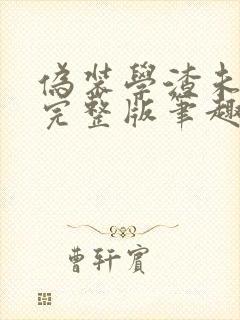 偽裝學渣未
完整版筆趣
曹軒賓